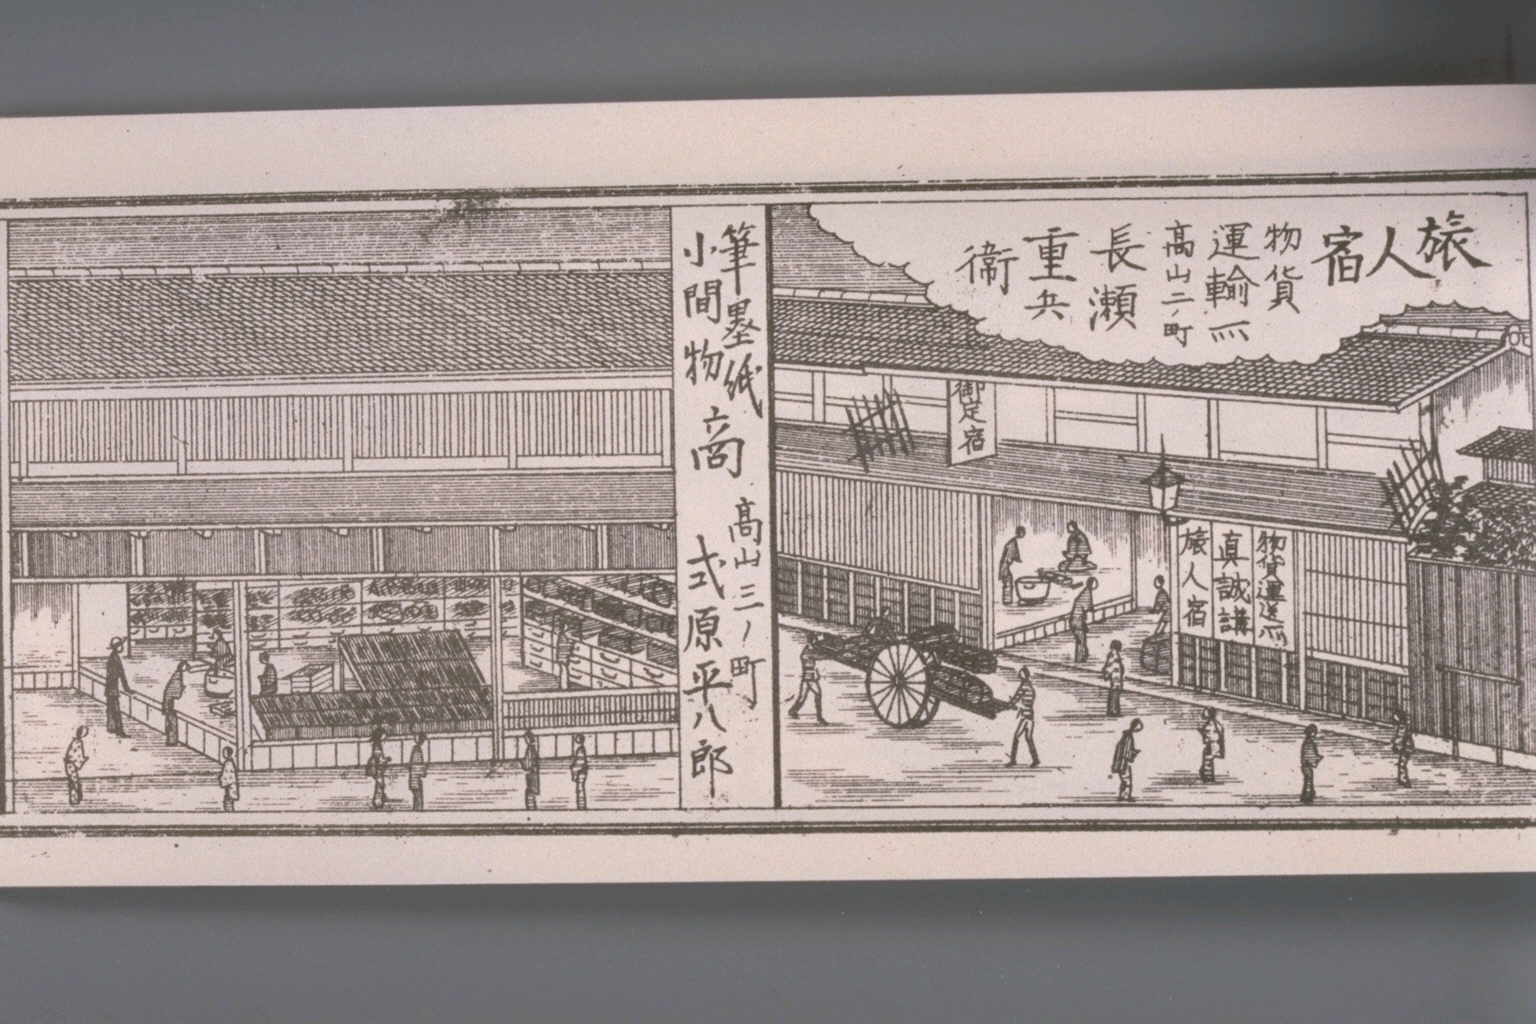 旅人宿
物貨
運輸所
高山二ノ町
長瀬
重兵
衞
御定宿
物貨運送所
真誠講
旅人宿
筆墨紙
小間物
商
高山三ノ町
式原平八郎